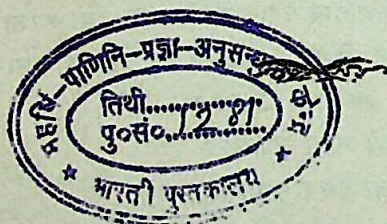 महर्षि-पाणिनि-प्रज्ञा-अनुसन्धान
तिथी..................
पु०सं०.1281........
★ भारती पुस्तकालय ★